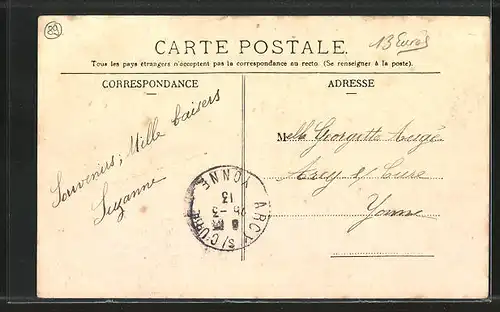 89
13 Euros
CARTE POSTALE.
Tous les pays étrangers n'acceptent pas la correspondance au recto (Se renseigner à la poste).
CORRESPONDANCE
ADRESSE
Souvenirs, Mille baisers
Suzanne
Melle Georgette Augé
Arcy s/ Cure
Yonne
ARCY S/CURE
25 - 3
13
YONNE